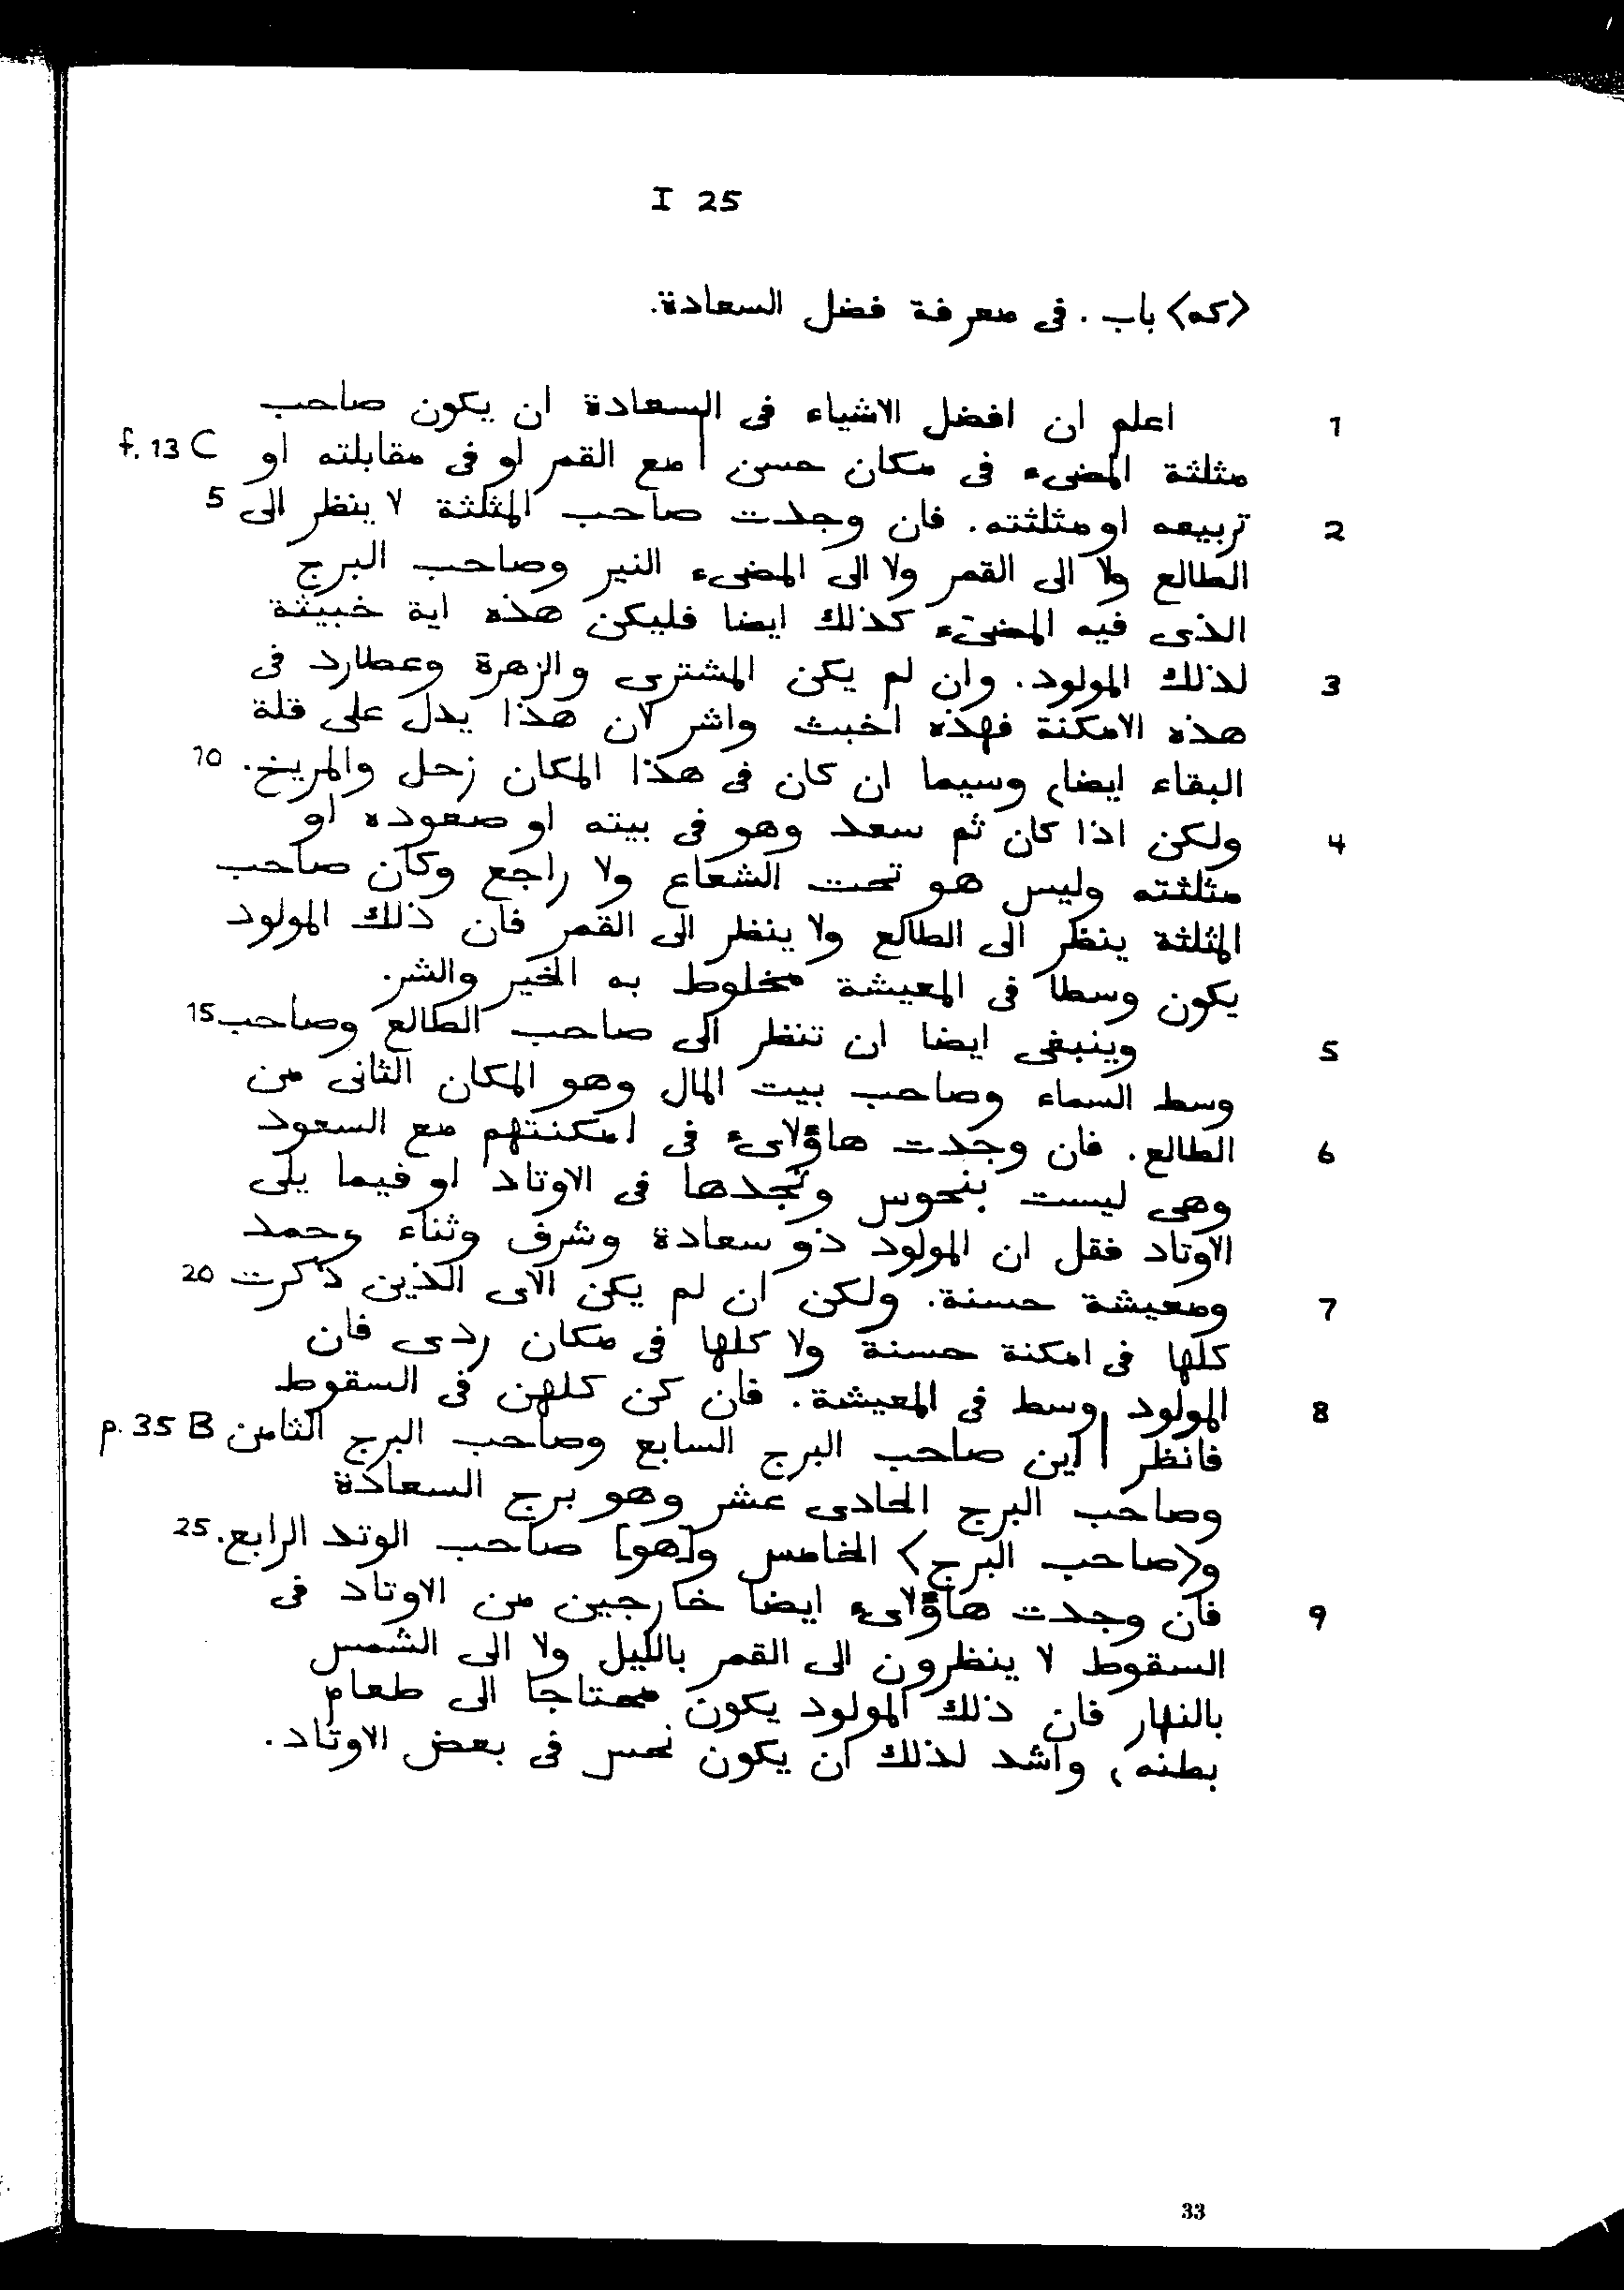 I 25
<كه> باب . فى معرفة فضل السعادة.
1 اعلم ان افضل الاشياء فى السعادة ان يكون صاحب
مثلثة المضىء فى مكان حسن | مع القمر او فى مقابلته او f. 13 C
2 تربيعه او مثلثته. فان وجدت صاحب المثلثة لا ينظر الى 5
الطالع ولا الى القمر ولا الى المضىء النير وصاحب البرج
الذى فيه المضىء كذلك ايضا فليكن هذه اية خبيثة
3 لذلك المولود. وان لم يكن المشترى والزهرة وعطارد فى
هذه الامكنة فهذه اخبث واشر لان هذا يدل على قلة
البقاء ايضا، وسيما ان كان فى هذا المكان زحل والمريخ. 10
4 ولكن اذا كان ثم سعد وهو فى بيته او صعوده او
مثلثته وليس هو تحت الشعاع ولا راجع وكان صاحب
المثلثة ينظر الى الطالع ولا ينظر الى القمر فان ذلك المولود
يكون وسطا فى المعيشة مخلوط به الخير والشر.
5 وينبغى ايضا ان تنظر الى صاحب الطالع وصاحب 15
وسط السماء وصاحب بيت المال وهو المكان الثانى من
6 الطالع. فان وجدت هاؤلاىء فى امكنتهم مع السعود
وهى ليست بنحوس وتجدها فى الاوتاد او فيما يلى
الاوتاد فقل ان المولود ذو سعادة وشرف وثناء وحمد
7 ومعيشة حسنة. ولكن ان لم يكن الاى الذين ذكرت 20
كلها فى امكنة حسنة ولا كلها فى مكان ردى فان
8 المولود وسط فى المعيشة. فان كن كلهن فى السقوط
فانظر | اين صاحب البرج السابع وصاحب البرج الثامن p. 35 B
وصاحب البرج الحادى عشر وهو برج السعادة
و<صاحب البرج> الخامس و[هو] صاحب الوتد الرابع. 25
9 فان وجدت هاؤلاىء ايضا خارجين من الاوتاد فى
السقوط لا ينظرون الى القمر بالليل ولا الى الشمس
بالنهار فان ذلك المولود يكون محتاجا الى طعام
بطنه، واشد لذلك ان يكون نحس فى بعض الاوتاد.
33